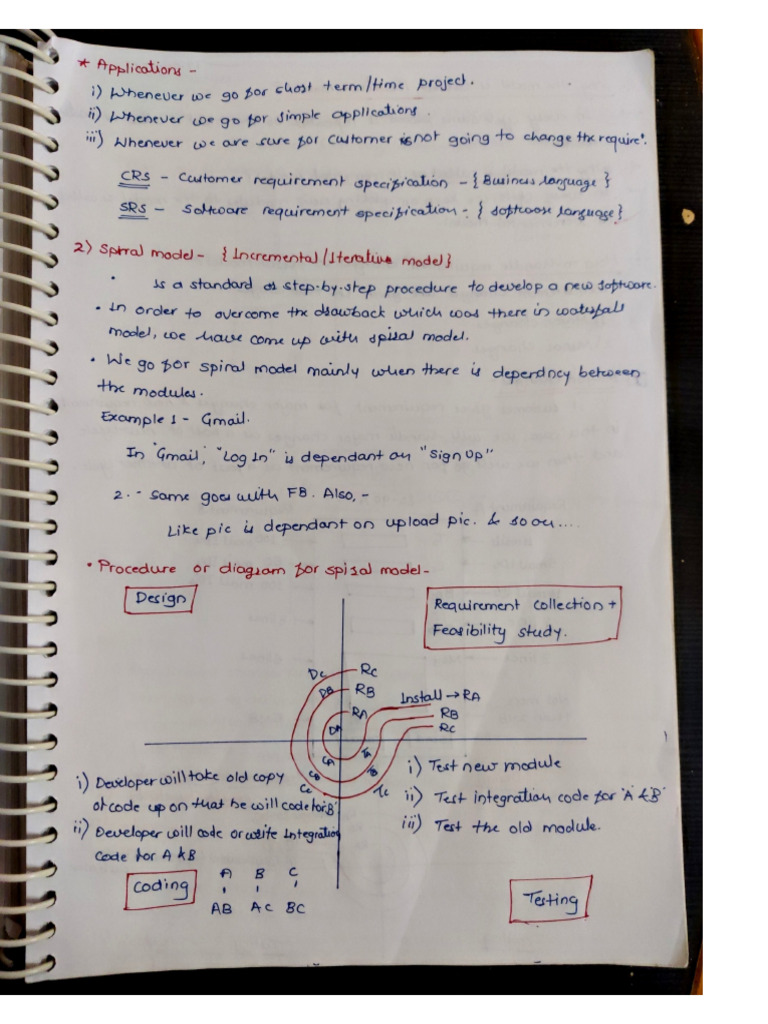 * Applications -
i) Whenever we go for short term/time project.
ii) Whenever we go for simple applications.
iii) Whenever we are sure for customer is not going to change the require'.
CRS - Customer requirement specification - { Business language }
SRS - Software requirement specification - { software language }
2) Spiral model - { Incremental/Iterative model }
• Is a standard or step-by-step procedure to develop a new software.
• In order to overcome the drawback which was there in waterfall
model, we have come up with spiral model.
• We go for spiral model mainly when there is dependncy between
the modules.
Example 1 - Gmail.
In "Gmail", "Log In" is dependant on "Sign Up"
2. - Same goes with FB. Also, -
Like pic is dependant on upload pic. & so on....
• Procedure or diagram for spiral model -
Design
Requirement collection +
Feasibility study.
DC RC
DB RB
DA RA
Install → RA
RB
RC
CA TA
CB TB
CC TC
i) Developer will take old copy
of code up on that he will code for 'B'
ii) Developer will code or write Integration
code for A & B
i) Test new module
ii) Test integration code for 'A & B'
iii) Test the old module.
Coding
A B C
AB AC BC
Testing